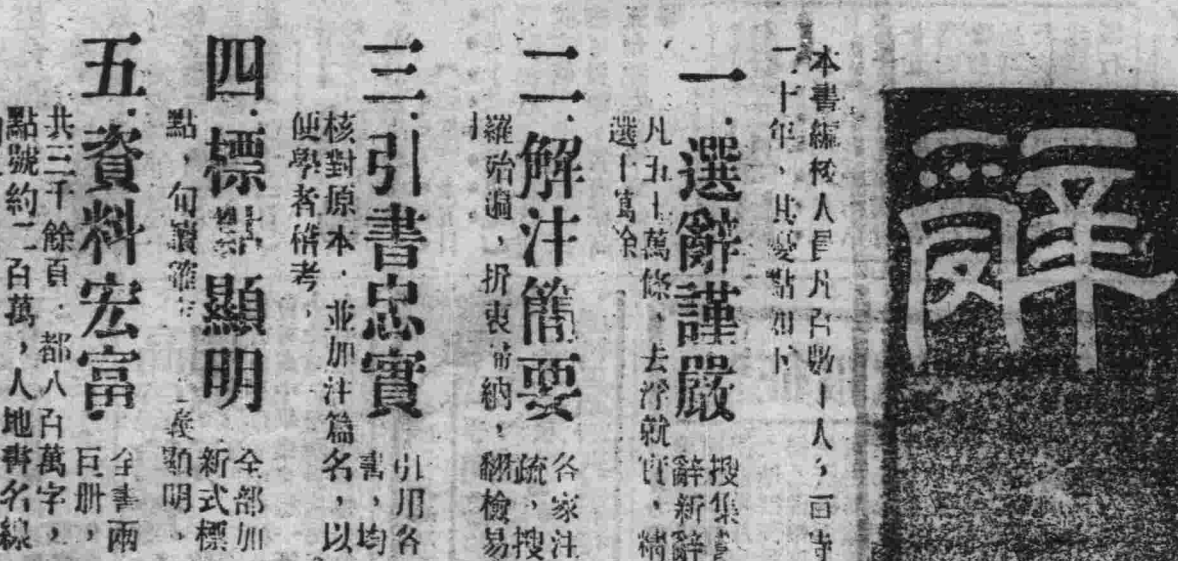 辭
本書編校人員凡百數十人,
二十年,其憂點如下
一.選辭謹嚴
搜集
辭新辭
凡五十萬條,去浮就實,精
選十萬餘
二.解注簡要
各家注
疏,搜
羅殆遍,折衷 納,翻檢易
三.引書忠實
引用各
書,均
核對原本,並加注篇名,以
便學者稽考,
四.標點顯明
全部加
新式標
點,句讀確 義顯明,
五.資料宏富
全書兩
巨册,
共三千餘頁,都八百萬字,
點號約二百萬,人地書名線